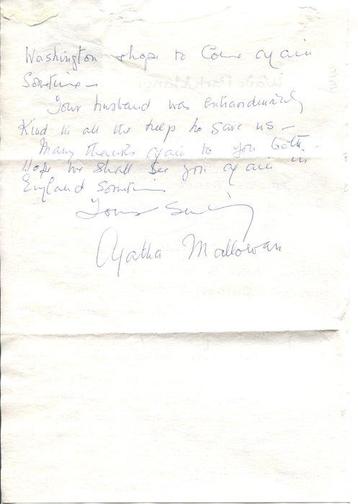 Washington & hope to come again
Sometime —
Your husband was extraordinarily
Kind in all the help he gave us —
Many thanks again to you both.
Hope we shall see you again in
England sometime
Yours Sincerely
Agatha Mallowan